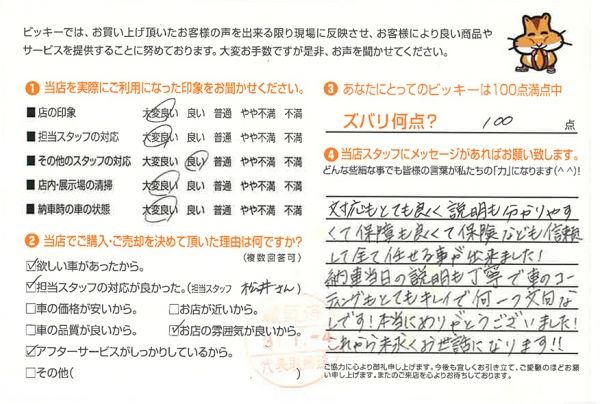 ビッキーでは、お買い上げ頂いたお客様の声を出来る限り現場に反映させ、お客様により良い商品や
サービスを提供することに努めております。大変お手数ですが是非、お声を聞かせてください。
❶ 当店を実際にご利用になった印象をお聞かせください。
■店の印象 大変良い 良い 普通 やや不満 不満
■担当スタッフの対応 大変良い 良い 普通 やや不満 不満
■その他のスタッフの対応 大変良い 良い 普通 やや不満 不満
■店内・展示場の清掃 大変良い 良い 普通 やや不満 不満
■納車時の車の状態 大変良い 良い 普通 やや不満 不満
❷ 当店でご購入・ご売却を決めて頂いた理由は何ですか?
(複数回答可)
☑欲しい車があったから。
☑担当スタッフの対応が良かった。(担当スタッフ 松井さん)
□車の価格が安いから。 □お店が近いから。
□車の品質が良いから。 ☑お店の雰囲気が良いから。
☑アフターサービスがしっかりしているから。
□その他( )
❸ あなたにとってのビッキーは100点満点中
ズバリ何点? 100 点
❹ 当店スタッフにメッセージがあればお願い致します。
どんな些細な事でも皆様の言葉が私たちの「力」になります(^^)!
対応もとても良く説明も分かりやす
くて保障も良くて保険なども信頼
して全て任せる事が出来ました!
納車当日の説明も丁寧で車のコー
ティングもとてもキレイで何一つ文句な
しです!本当にありがとうございました!
これから末永くお世話になります!!
ご協力に心より御礼申し上げます。今後も宜しくお引き立て、ご愛顧のほどお願
い申し上げます。またのご来店を心よりお待ちしております。